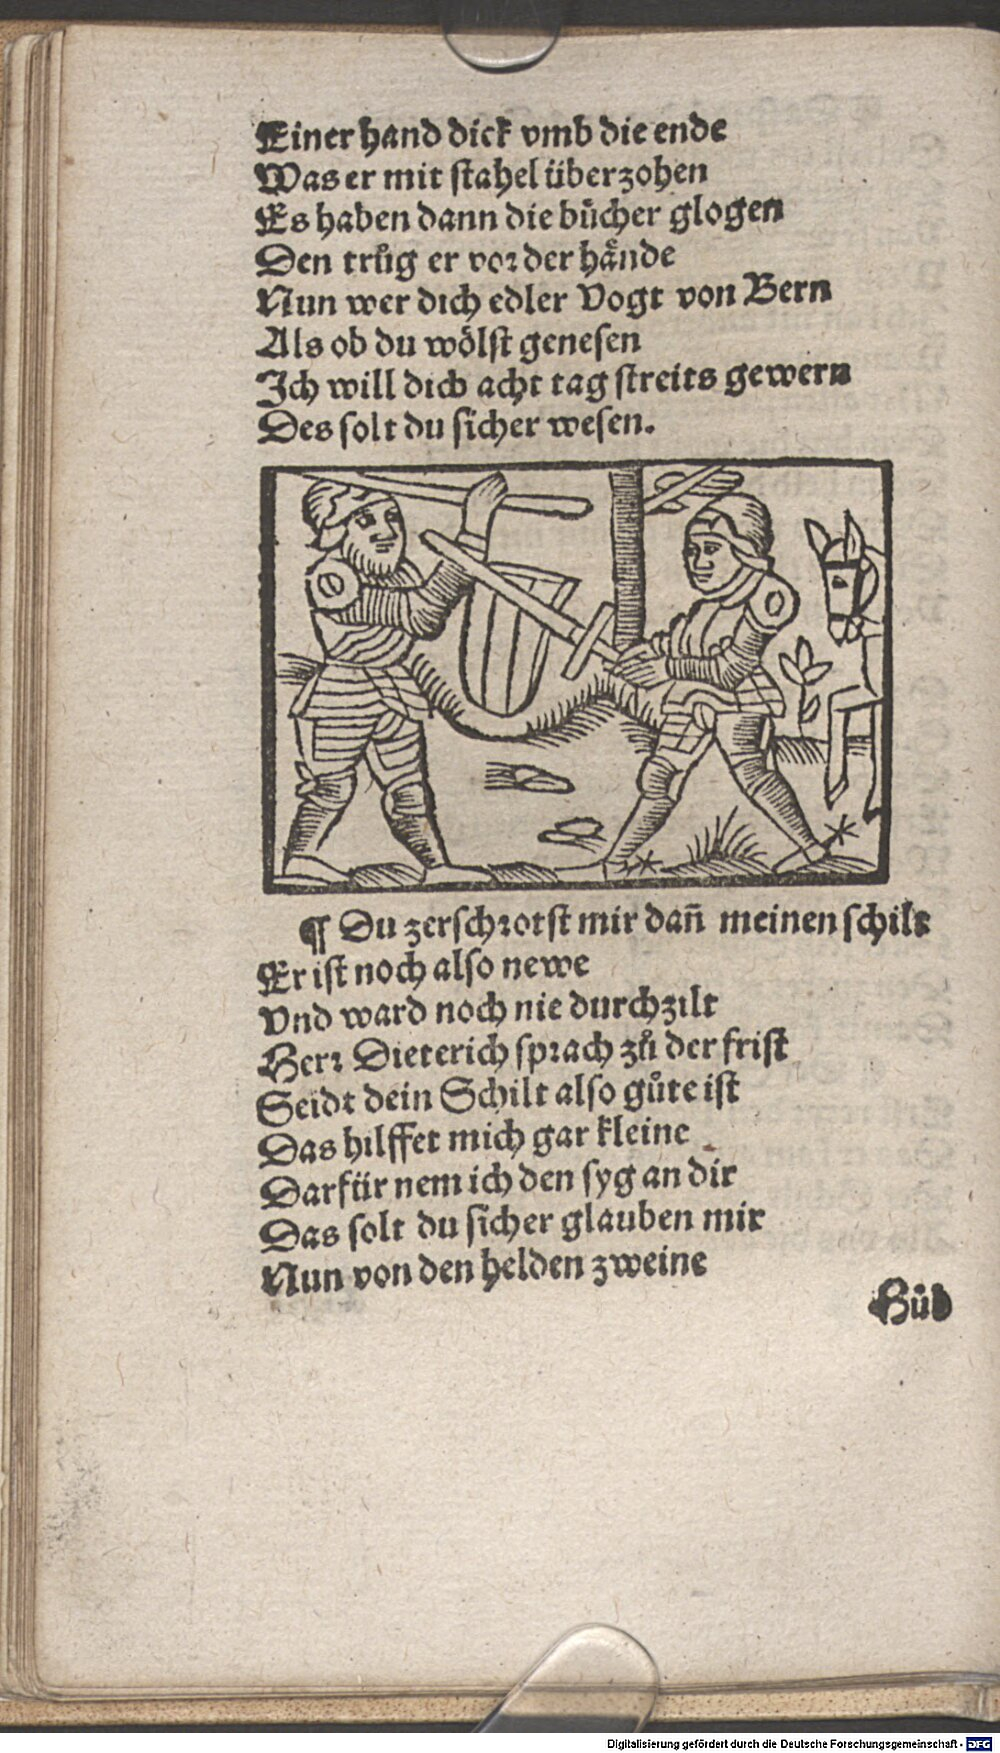 Einer hand dick vmb die ende
Was er mit stahel überzohen
Es haben dann die bůcher glogen
Den trůg er vor der hånde
Nun wer dich edler Vogt von Bern
Als ob du wölst genesen
Ich will dich acht tag streits gewern
Des solt du sicher wesen.
¶ Du zerschrotst mir dañ meinen schilt
Er ist noch also newe
Vnd ward noch nie durchzilt
Herr Dieterich sprach zů der frist
Seidt dein Schilt also gůte ist
Das hilffet mich gar kleine
Darfür nem ich den syg an dir
Das solt du sicher glauben mir
Nun von den helden zweine
Hůb
Digitalisierung gefördert durch die Deutsche Forschungsgemeinschaft - DFG